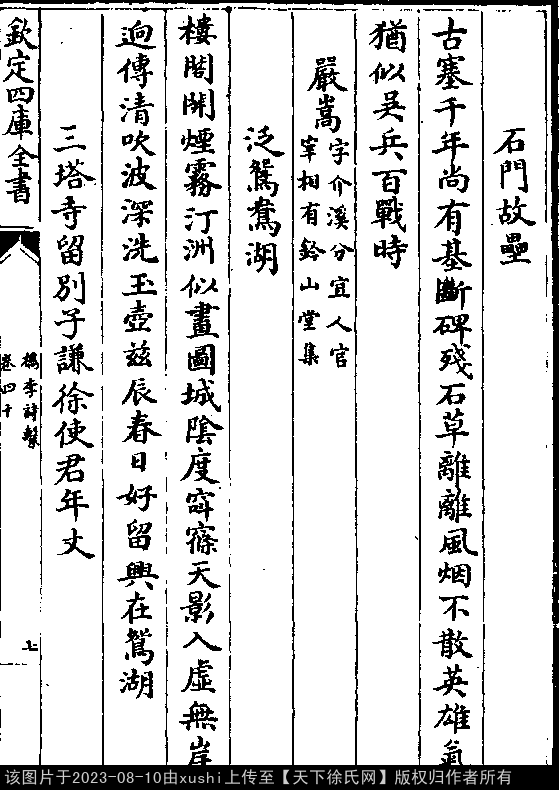 石門故壘
古塞千年尚有基斷碑殘石草離離風烟不散英雄氣
猶似吳兵百戰時
嚴嵩字介溪分宜人官
宰相有鈐山堂集
泛鴛鴦湖
樓閣開煙霧汀洲似畫圖城陰度窅篠天影入虛無岸
逈傳清吹波深洗玉壺兹辰春日好留興在鴛湖
三塔寺留別子謙徐使君年丈
欽定四庫全書
檇李詩繫
卷四十
上
该图片于2023-08-10由xushi上传至【天下徐氏网】版权归作者所有